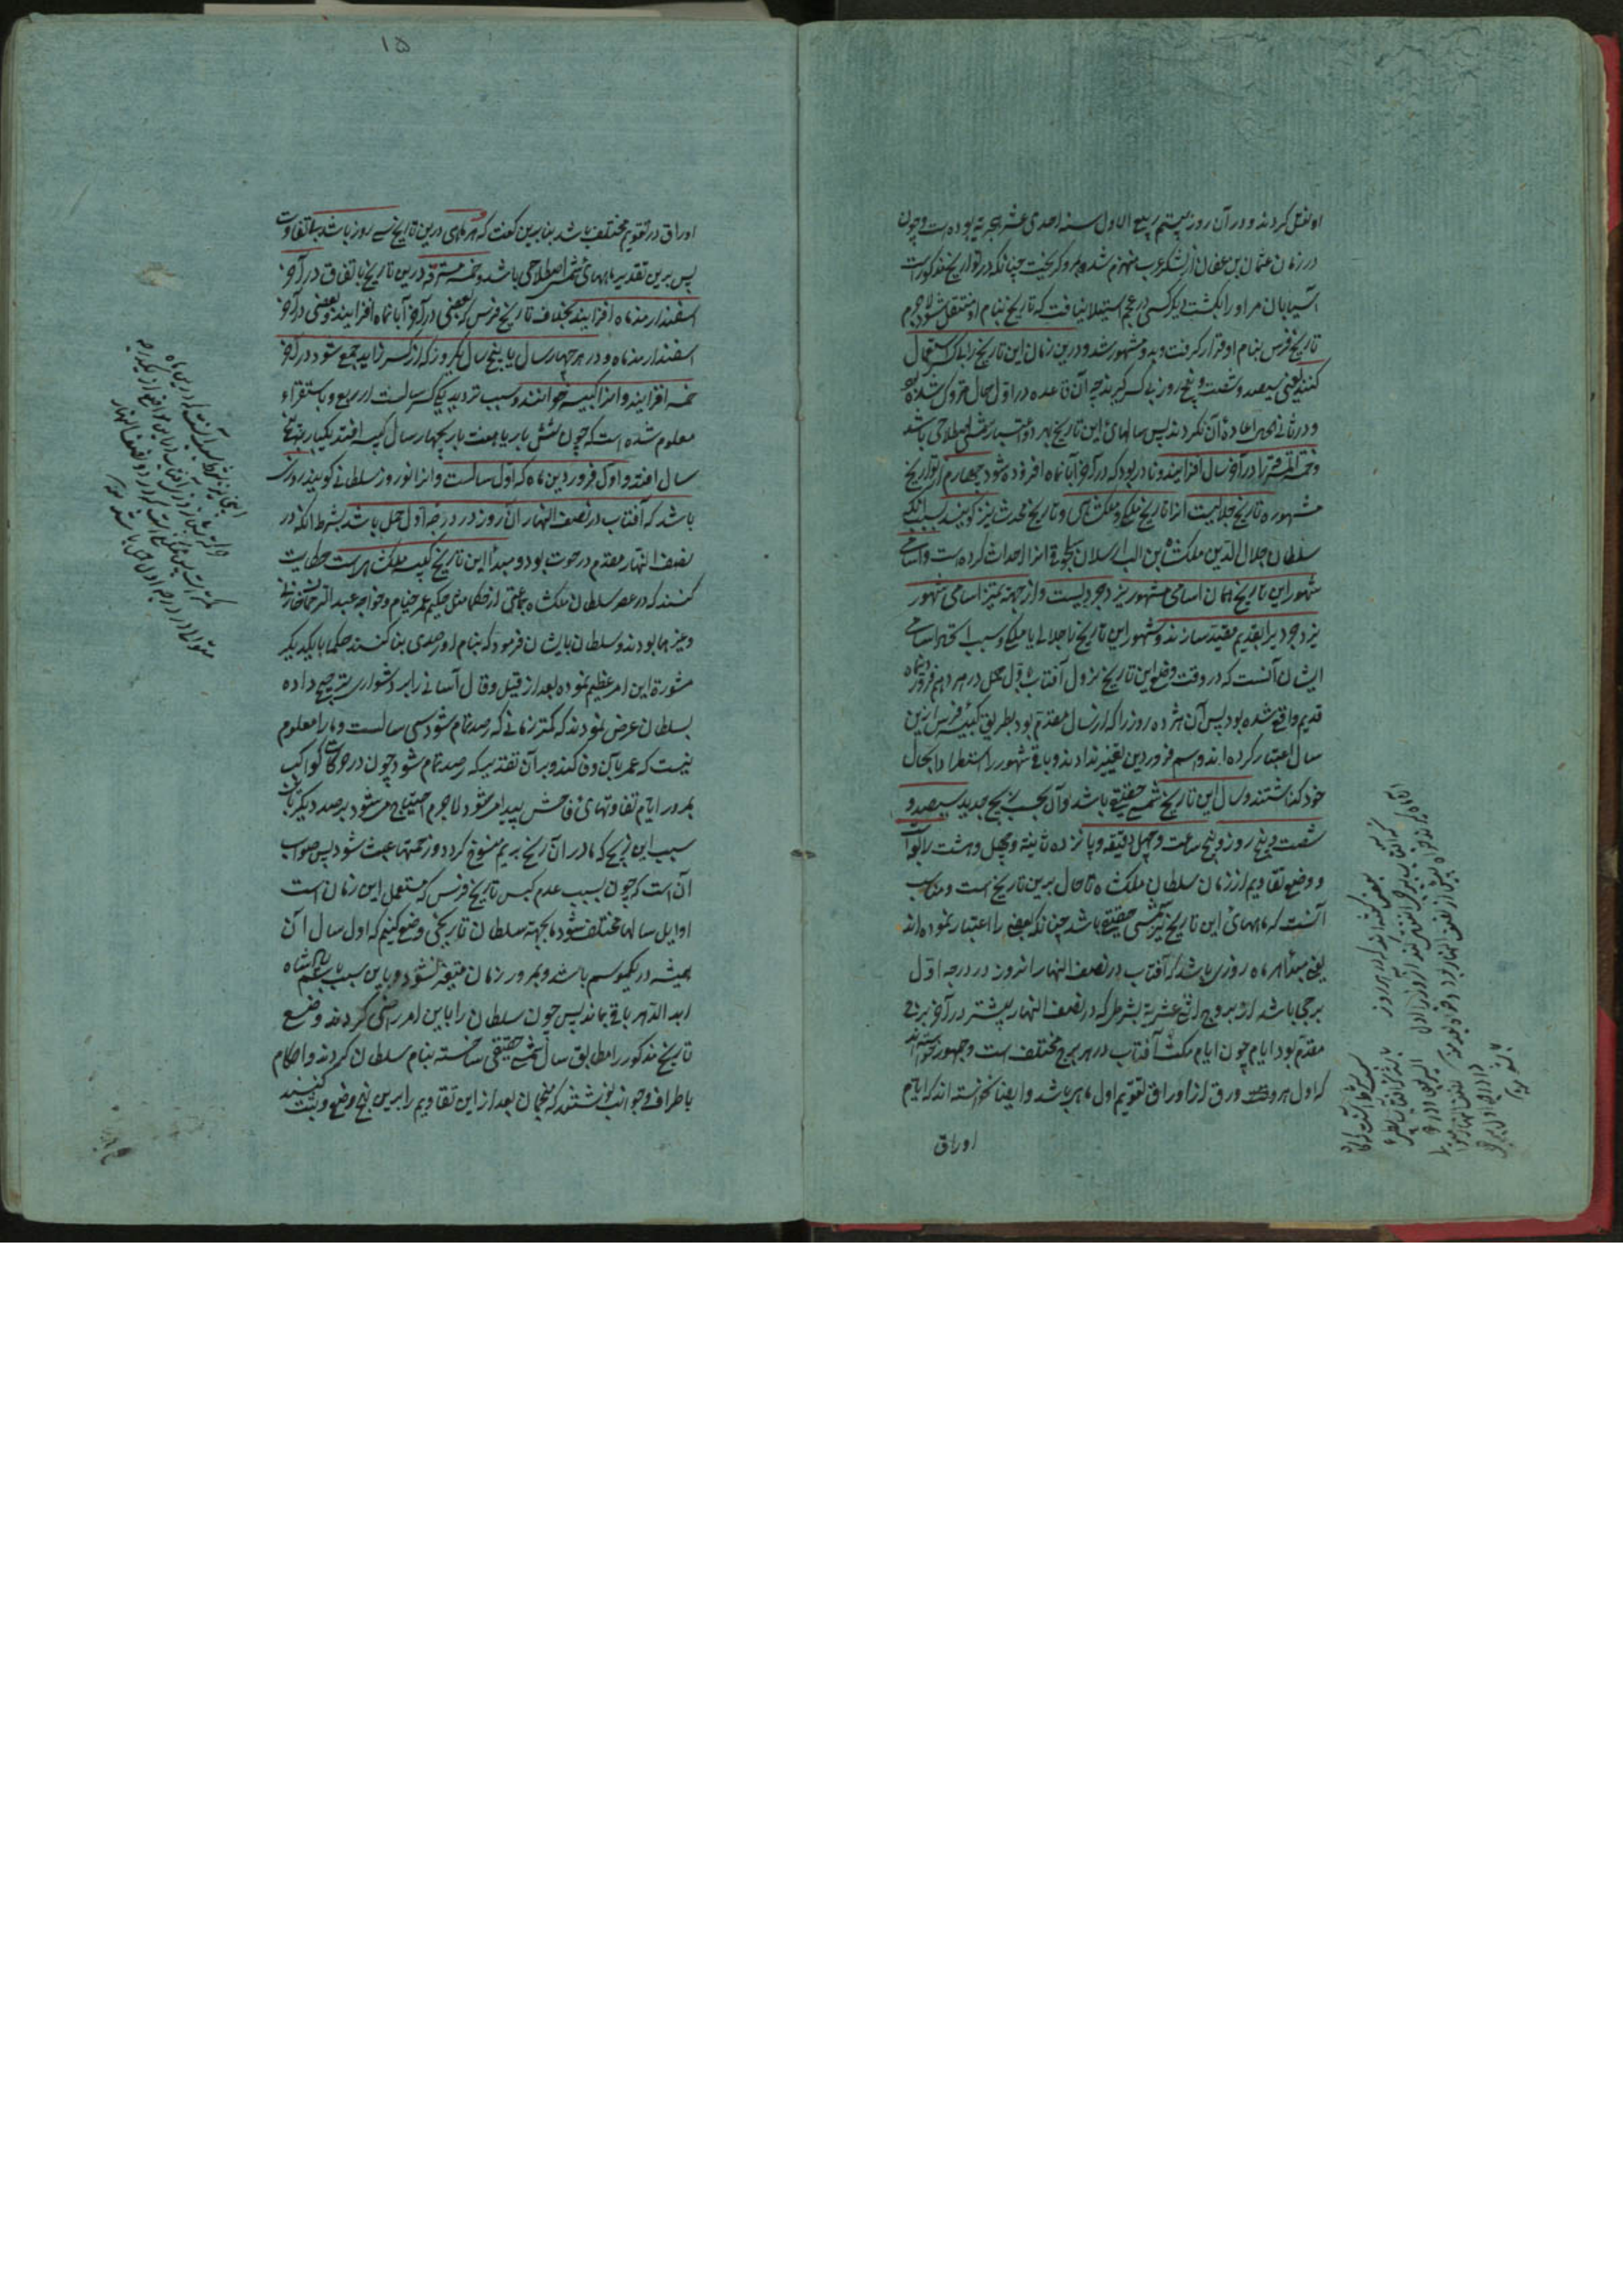 او نقل کردند و در آن روز بیستم ربیع الاول سنه احدی عشر هجریه بوده است و چون
در زمان عثمان بن عفان از لشکر عرب منهزم شد و بمرو گریخت چنانکه در تواریخ مذکور است
آسیابان مر او را بکشت دیگر کسی در عجم استیلا نیافت که تاریخ بنام او منتقل شود لاجرم
تاریخ فرس بنام او قرار گرفت و بدو مشهور شد و درین زمان این تاریخ را بی کسر استعمال
کنند یعنی سیصد و شصت و پنج روز بی کسر گیرند چه آن قاعده در اول حال متروک شده بود
و در ثانی الحال اعاده آن نکردند پس سالهای این تاریخ بهر دو اعتبار شمسی اصطلاحی باشد
و خمسه مسترقه را در آخر سال افزایند و نادر بود که در آخر آبانماه افزوده شود چهارم از تواریخ
مشهوره تاریخ جلالیست و آنرا تاریخ ملکی و ملکشاهی و تاریخ محدث نیز گویند بسبب آنکه
سلطان جلال الدین ملکشاه بن الب ارسلان سلجوقی آنرا احداث کرده است و اسامی
شهور این تاریخ همان اسامی شهور یزدجردیست و از جهة تمیز اسامی شهور
یزدجرد را بقدیم مقید سازند و شهور این تاریخ را بجلالی یا ملکی و سبب اتحاد اسامی
ایشان آنست که در وقت وضع این تاریخ نزول آفتاب باول حمل در هژدهم فروردینماه
قدیم واقع شده بود پس آن هژده روز را که از سال مقدم بود بطریق کبیسه فرس ازین
سال اعتبار کرده اند و اسم فروردین تغییر ندادند و باقی شهور را استطرادا بحال
خود گذاشتند و سال این تاریخ شمسی حقیقی باشد و آن بحسب زیج جدید سیصد و
شصت و پنج روز و پنج ساعت و چهل دقیقه و پانزده ثانیه و چهل و هشت رابعه است
و وضع تقاویم از زمان سلطان ملکشاه تا حال برین تاریخ است و مناسب
آنست که ماههای این تاریخ نیز شمسی حقیقی باشد چنانکه بعضی را اعتبار نموده اند
یعنی مبدأ هر ماه روزی باشد که آفتاب در نصف النهار آن روز در درجه اول
برجی باشد از بروج اثنی عشریه بشرطی که در نصف النهار پیشتر در آخر برجی
مقدم بود اما چون ایام مکث آفتاب در هر برج مختلف است و جمهور نخواسته اند
که اول هر ورق از اوراق تقویم اول ماهی باشد و ایضا نخواسته اند که ایام
اوراق
۱۵
اوراق در تقویم مختلف باشد بنابرین گفت که هر ماهی درین تاریخ سی روز باشد بی تفاوت
پس برین تقدیر ماههای شمسی اصطلاحی باشد و خمسه مسترقه درین تاریخ باتفاق در آخر
اسفندارمذماه افزایند بخلاف تاریخ فرس که بعضی در آخر آبانماه افزایند و بعضی در آخر
اسفندارمذماه و در هر چهار سال یا پنج سال یکروز که از کسر زاید جمع شود در آخر
خمسه افزایند و آنرا کبیسه خوانند و سبب تردید یک کسر سالست از ربع و باستقراء
معلوم شده است که چون شش بار یا هفت بار بچهار سال کبیسه افتد یکبار به پنج
سال افتد و اول فروردین ماه که اول سالست و آنرا نوروز سلطانی گویند روزی
باشد که آفتاب در نصف النهار آن روز در درجه اول حمل باشد بشرط آنکه در
نصف النهار مقدم در حوت بود و مبدأ این تاریخ کبیسه ملکشاهیست حکایت
کنند که در عصر سلطان ملکشاه جماعتی از حکما مثل حکیم عمر خیام و خواجه عبد الرحمن خازنی
و غیرهما بودند و سلطان بایشان فرمود که بنام او رصدی بنا کنند حکما با یکدیگر
مشورة این امر عظیم نموده بعد از قیل و قال آسانی را بر دشواری ترجیح داده
بسلطان عرض نمودند که کمتر زمانی که رصد تمام شود سی سالست و ما را معلوم
نیست که عمر بآن وفا کند و بر آن تقدیر که رصد تمام شود چون در حرکات کواکب
بمرور ایام تفاوتهای فاحش پیدا میشود لاجرم احتیاج میشود برصد دیگر بآن
سبب این زیج که ما در آن رنج بریم منسوخ گردد و زحمتها عبث شود پس صواب
آن است که چون بسبب عدم کبس تاریخ فرس که مستعمل این زمان است
اوایل سالها مختلف شود ما بجهة سلطان تاریخی وضع کنیم که اول سال آن
همیشه در یکموسم باشد و بمرور زمان متغیر نشود و باین سبب نام پادشاه
ابد الدهر باقی بماند پس چون سلطان را باین امر راضی کردند وضع
تاریخ مذکور را مطابق سال شمسی حقیقی ساخته بنام سلطان کردند و احکام
باطراف و جوانب نوشتند که منجمان بعد ازین تقاویم را برین نهج وضع و ثبت کنند